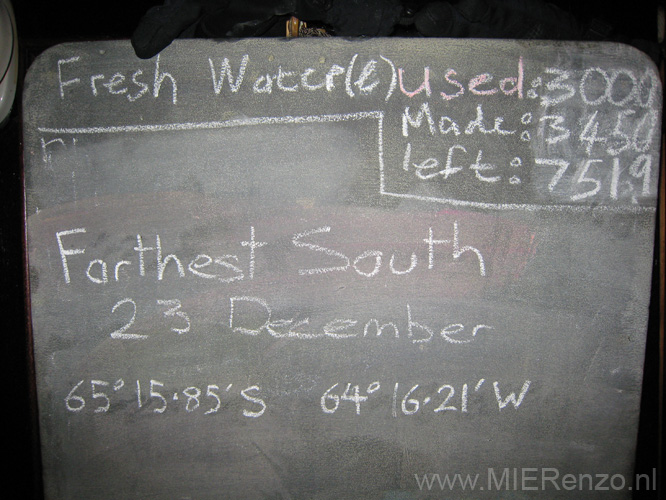 Fresh Water(l) used: 3000
Made: 3450
left: 7519
Farthest South
23 December
65° 15.85' S 64° 16.21' W
www.MIERenzo.nl